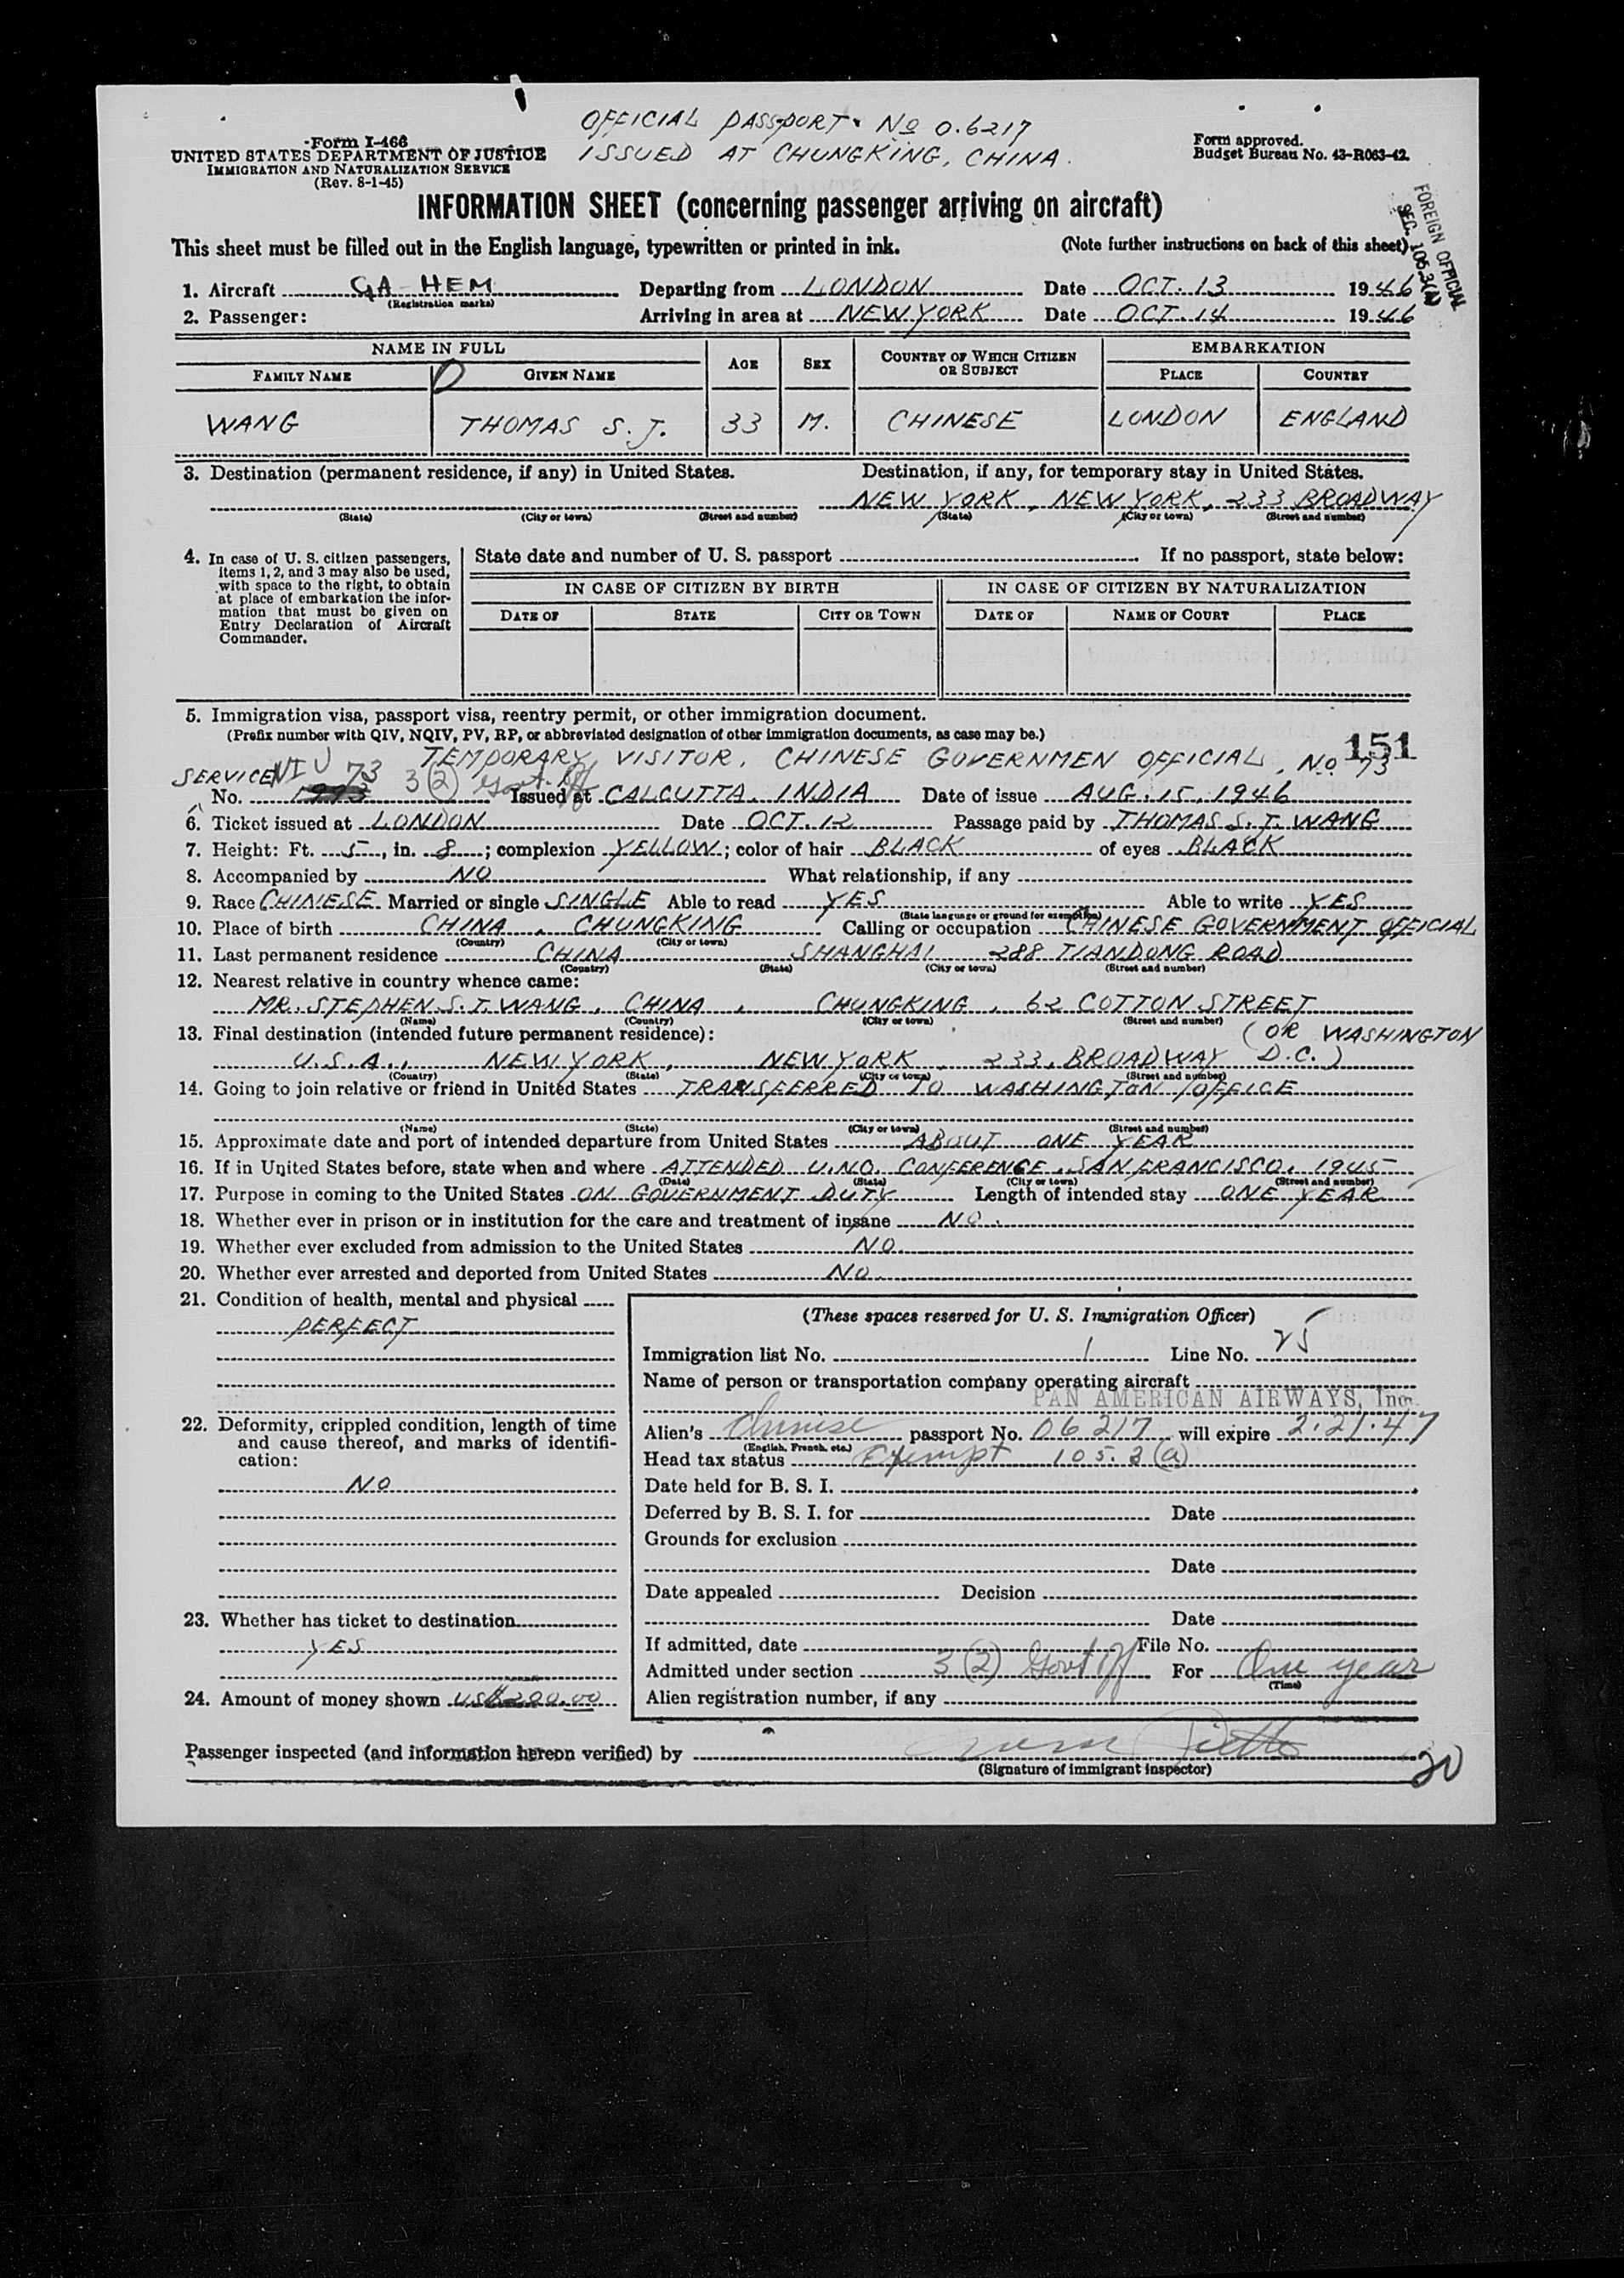 OFFICIAL PASSPORT. No 0.6217
ISSUED AT CHUNGKING, CHINA.
Form I-466
UNITED STATES DEPARTMENT OF JUSTICE
IMMIGRATION AND NATURALIZATION SERVICE
(Rev. 8-1-45)
Form approved.
Budget Bureau No. 43-R063-42.
INFORMATION SHEET (concerning passenger arriving on aircraft)
FOREIGN OFFICIAL
SEC. 105.3(A)
This sheet must be filled out in the English language, typewritten or printed in ink. (Note further instructions on back of this sheet)
1. Aircraft GA-HEM Departing from LONDON Date OCT. 13 1946
(Registration marks)
2. Passenger: Arriving in area at NEW YORK Date OCT. 14 1946
NAME IN FULL AGE SEX COUNTRY OF WHICH CITIZEN OR SUBJECT EMBARKATION
FAMILY NAME GIVEN NAME PLACE COUNTRY
WANG THOMAS S. J. 33 M. CHINESE LONDON ENGLAND
3. Destination (permanent residence, if any) in United States. Destination, if any, for temporary stay in United States.
NEW YORK, NEW YORK, 233 BROADWAY
(State) (City or town) (Street and number) (State) (City or town) (Street and number)
4. In case of U. S. citizen passengers, items 1, 2, and 3 may also be used, with space to the right, to obtain at place of embarkation the information that must be given on Entry Declaration of Aircraft Commander.
State date and number of U. S. passport If no passport, state below:
IN CASE OF CITIZEN BY BIRTH IN CASE OF CITIZEN BY NATURALIZATION
DATE OF STATE CITY OR TOWN DATE OF NAME OF COURT PLACE
5. Immigration visa, passport visa, reentry permit, or other immigration document.
(Prefix number with QIV, NQIV, PV, RP, or abbreviated designation of other immigration documents, as case may be.)
151
TEMPORARY VISITOR, CHINESE GOVERNMEN OFFICIAL, No 73
SERVICE NIV 73 3(2) Govt. Off
No. Issued at CALCUTTA, INDIA Date of issue AUG. 15, 1946
6. Ticket issued at LONDON Date OCT. 12 Passage paid by THOMAS S. J. WANG
7. Height: Ft. 5, in. 8; complexion YELLOW; color of hair BLACK of eyes BLACK
8. Accompanied by NO What relationship, if any
9. Race CHINESE Married or single SINGLE Able to read YES Able to write YES
(State language or ground for exemption)
10. Place of birth CHINA, CHUNGKING Calling or occupation CHINESE GOVERNMENT OFFICIAL
(Country) (City or town)
11. Last permanent residence CHINA SHANGHAI 288 TIANDONG ROAD
(Country) (State) (City or town) (Street and number)
12. Nearest relative in country whence came:
MR. STEPHEN S. T. WANG, CHINA, CHUNGKING, 62 COTTON STREET
(Name) (Country) (City or town) (Street and number)
13. Final destination (intended future permanent residence): (OR WASHINGTON
U.S.A., NEW YORK, NEW YORK, 233, BROADWAY D.C.)
(Country) (State) (City or town) (Street and number)
14. Going to join relative or friend in United States TRANSFERRED TO WASHINGTON OFFICE
(Name) (State) (City or town) (Street and number)
15. Approximate date and port of intended departure from United States ABOUT ONE YEAR
16. If in United States before, state when and where ATTENDED U.NO. CONFERENCE, SAN FRANCISCO, 1945
(Date) (State) (City or town) (Street and number)
17. Purpose in coming to the United States ON GOVERNMENT DUTY Length of intended stay ONE YEAR
18. Whether ever in prison or in institution for the care and treatment of insane NO.
19. Whether ever excluded from admission to the United States NO.
20. Whether ever arrested and deported from United States NO.
21. Condition of health, mental and physical
PERFECT
22. Deformity, crippled condition, length of time and cause thereof, and marks of identification:
NO
23. Whether has ticket to destination
YES
24. Amount of money shown US$200.00
(These spaces reserved for U. S. Immigration Officer)
Immigration list No. 1 Line No. 25
Name of person or transportation company operating aircraft
PAN AMERICAN AIRWAYS, Inc.
Alien's Chinese passport No. 06217 will expire 2.21.47
(English, French, etc.)
Head tax status Exempt 105.3(a)
Date held for B. S. I.
Deferred by B. S. I. for Date
Grounds for exclusion
Date
Date appealed Decision
Date
If admitted, date File No.
Admitted under section 3(2) Govt Off For One year
(Time)
Alien registration number, if any
Passenger inspected (and information hereon verified) by
(Signature of immigrant inspector)
20